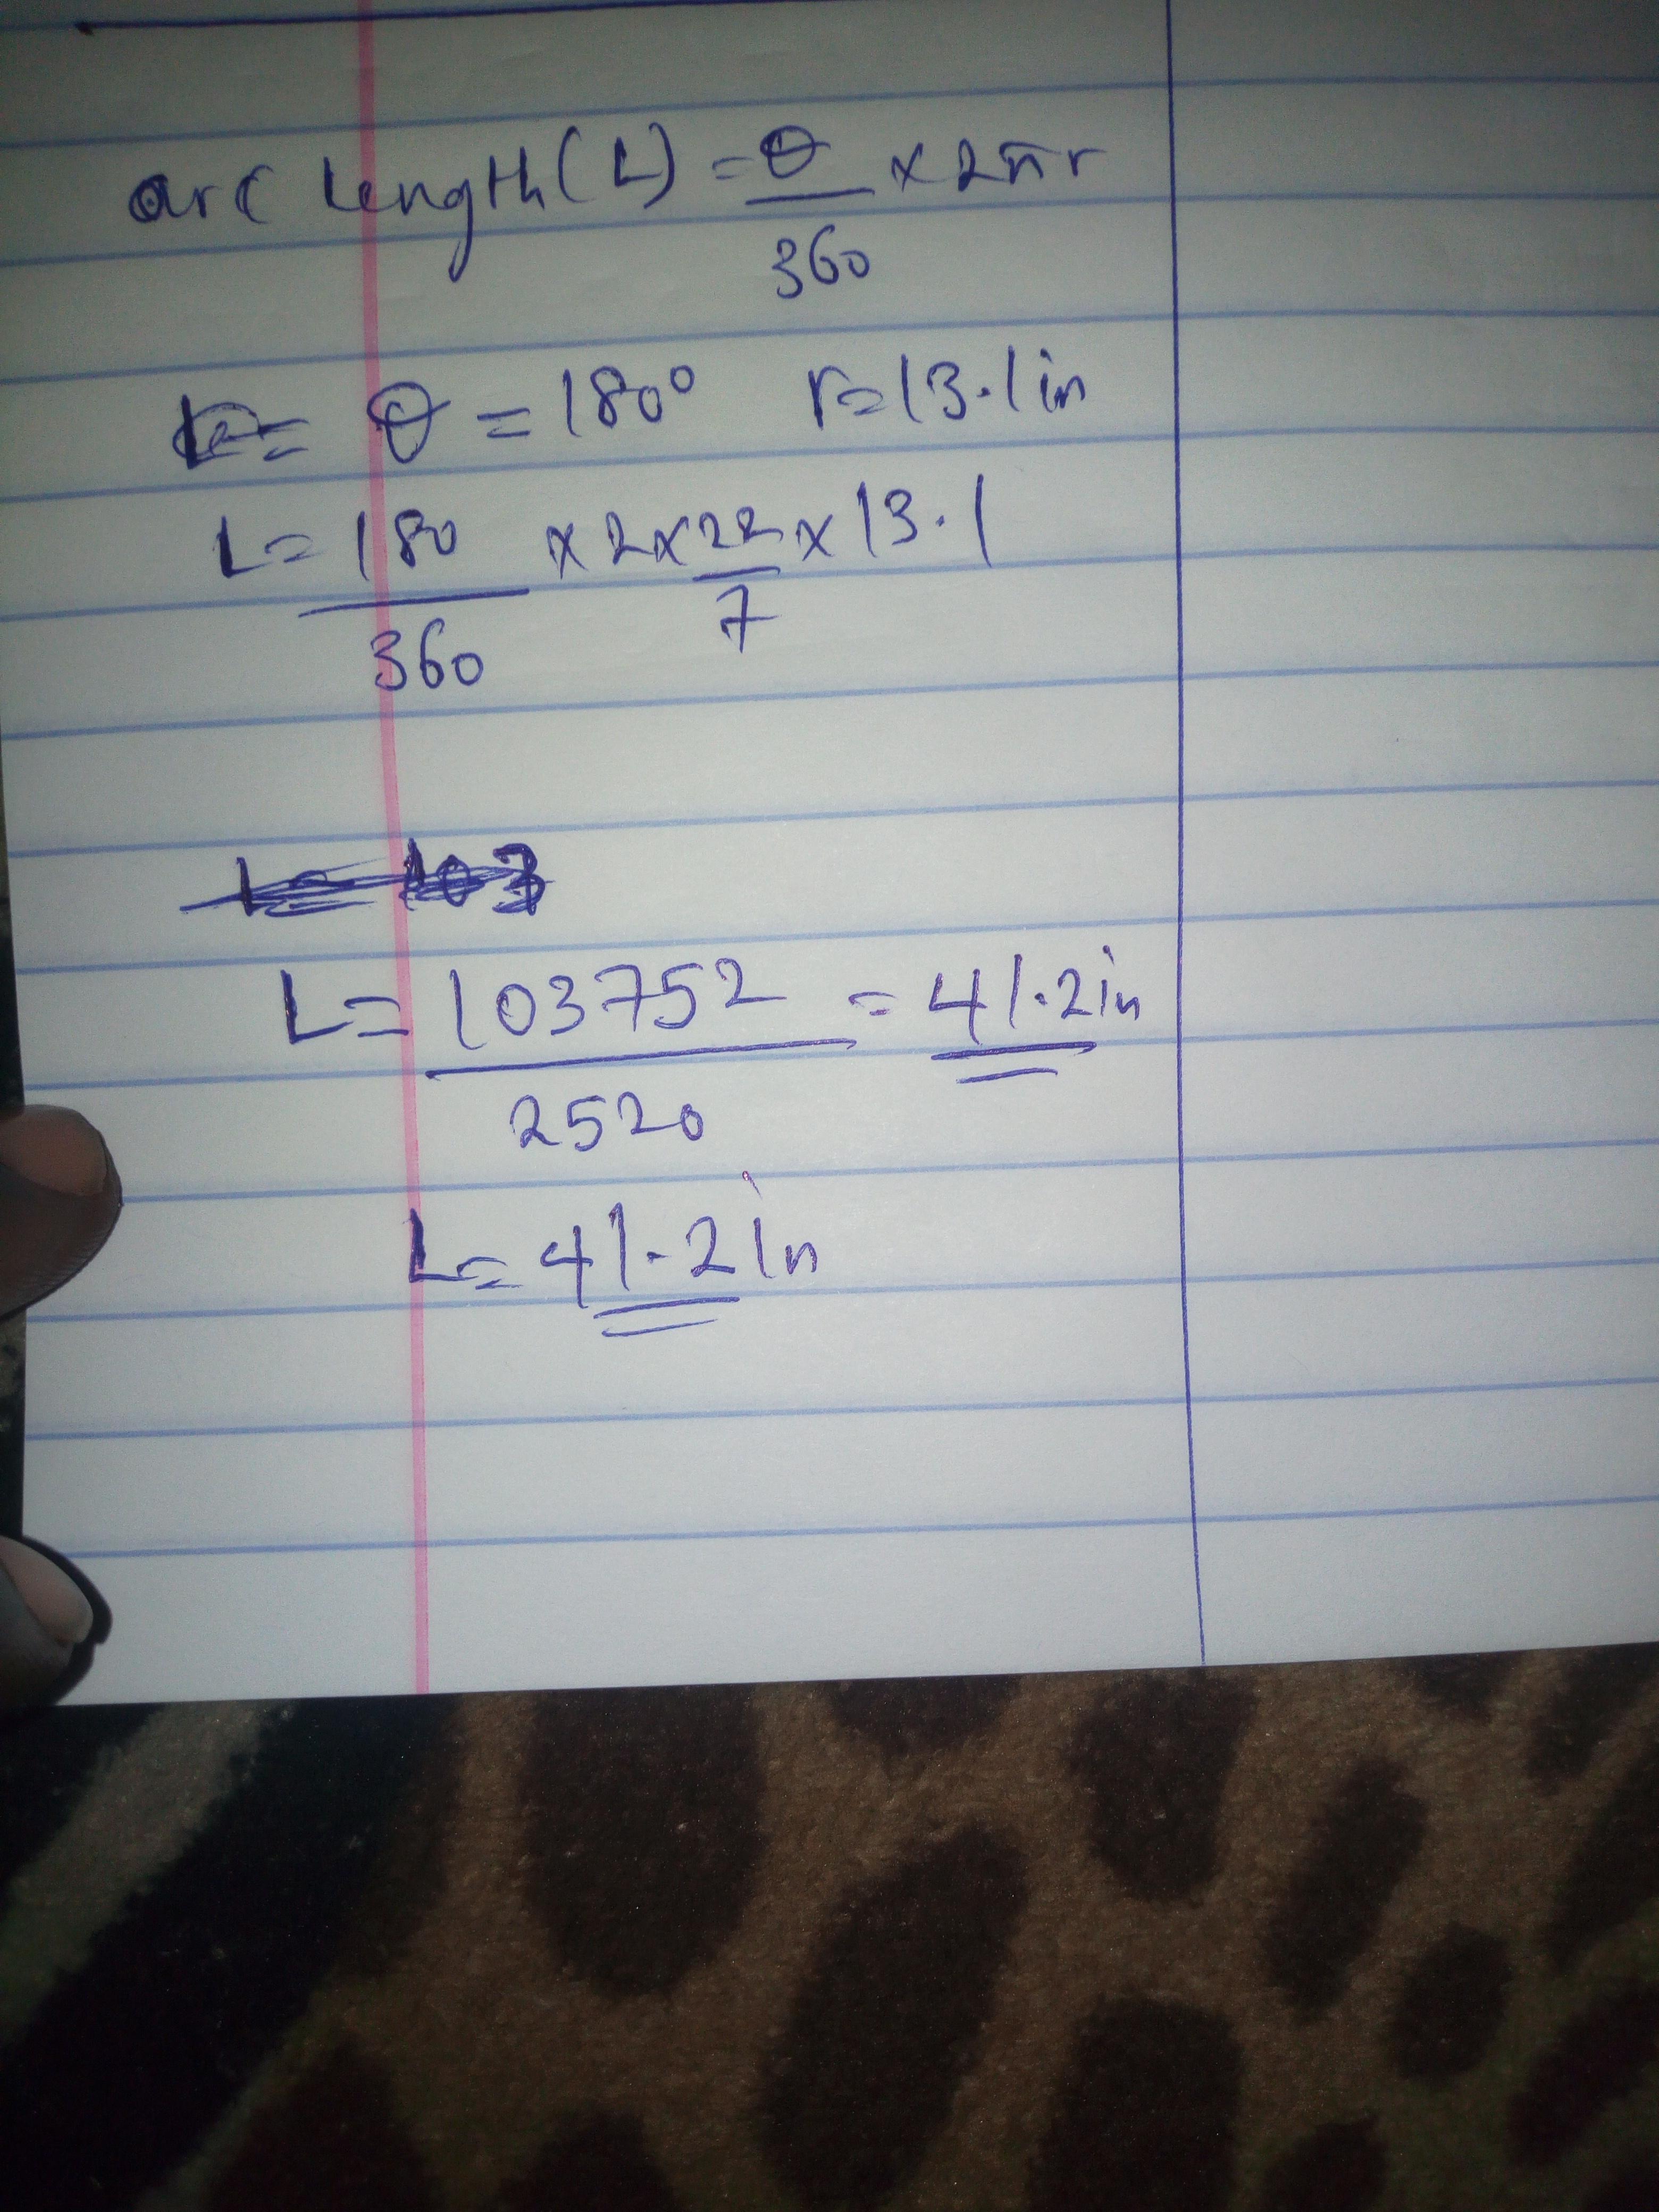 arc length (L) = θ/360 × 2πr
θ = 180° r = 13.1 in
L = 180/360 × 2 × 22/7 × 13.1
L = 103
L = 103752/2520 = 41.2 in
L = 41.2 in